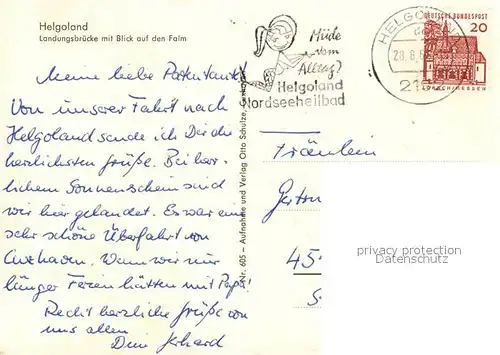 Helgoland
Landungsbrücke mit Blick auf den Falm
Meine liebe Patentante!
Von unserer Fahrt nach
Helgoland sende ich Dir die
herzlichsten Grüße. Bei herr-
lichem Sonnenschein sind
wir hier gelandet. Es war eine
sehr schöne Überfahrt von
Cuxhaven. Wenn wir nur
länger Ferien hätten mit Papa!
Recht herzliche Grüße von
uns allen
Dein
Nr. 605 – Aufnahme und Verlag Otto Schulze,
Müde
vom
Alltag?
Helgoland
Nordseeheilbad
HELGOLAND
DEUTSCHE BUNDESPOST
20
LORSCH/HESSEN
Fräulein
45
privacy protection
Datenschutz